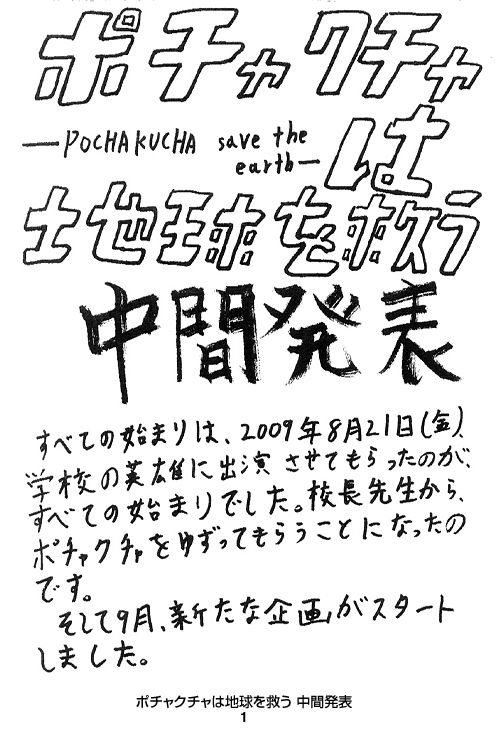 ポチャクチャ
—POCHAKUCHA save the
earth—
は
地球を救う
中間発表
すべての始まりは、2009年8月21日(金)、
学校の英雄に出演させてもらったのが、
すべての始まりでした。校長先生から、
ポチャクチャをゆずってもらうことになったの
です。
そして9月、新たな企画がスタート
しました。
ポチャクチャは地球を救う 中間発表
1